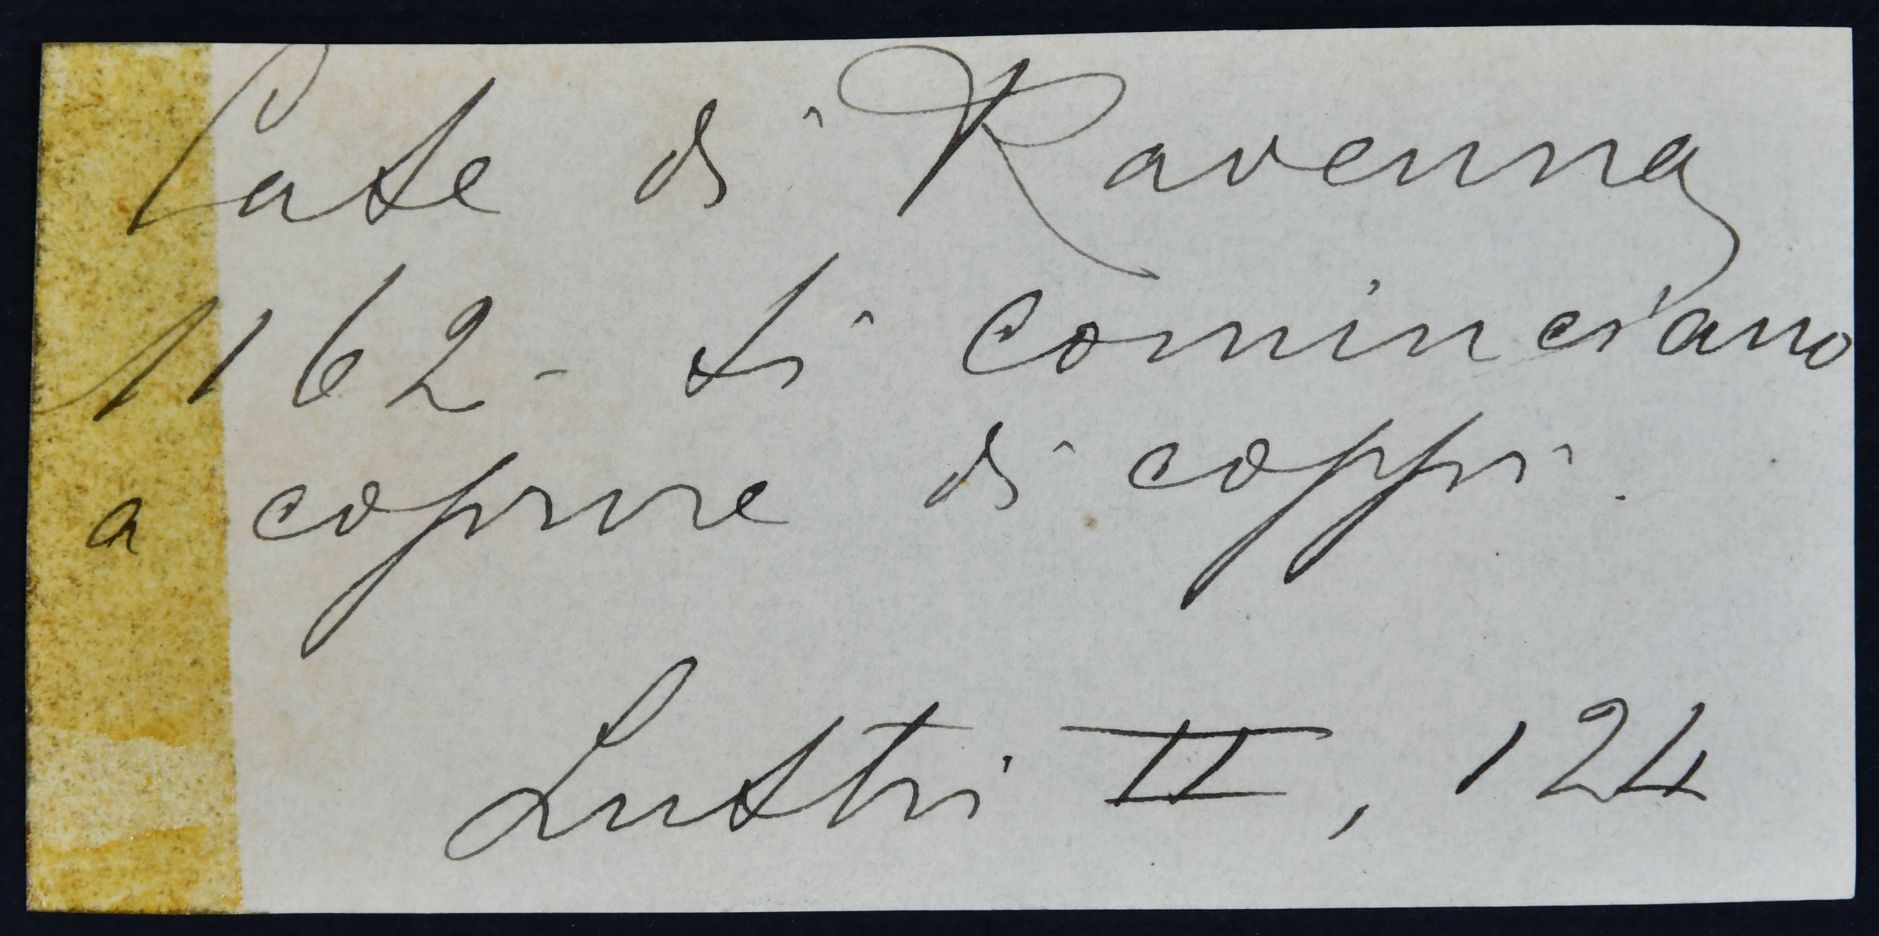 Case di Ravenna
1162 - Si cominciano
a coprire di coppi.
Lustri II, 124